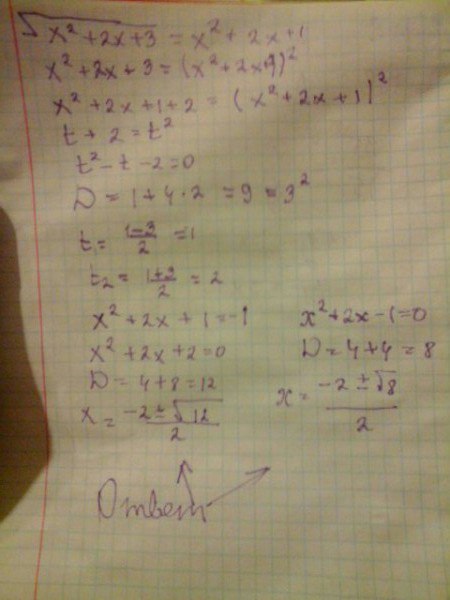 √x² + 2x + 3 = x² + 2x + 1
x² + 2x + 3 = (x² + 2x + 1)²
x² + 2x + 1 + 2 = (x² + 2x + 1)²
t + 2 = t²
t² - t - 2 = 0
D = 1 + 4 · 2 = 9 = 3²
t₁ = (1-3)/2 = 1
t₂ = (1+3)/2 = 2
x² + 2x + 1 = -1
x² + 2x + 2 = 0
D = 4 + 8 = 12
x = (-2 ± √12)/2
x² + 2x - 1 = 0
D = 4 + 4 = 8
x = (-2 ± √8)/2
Ответ